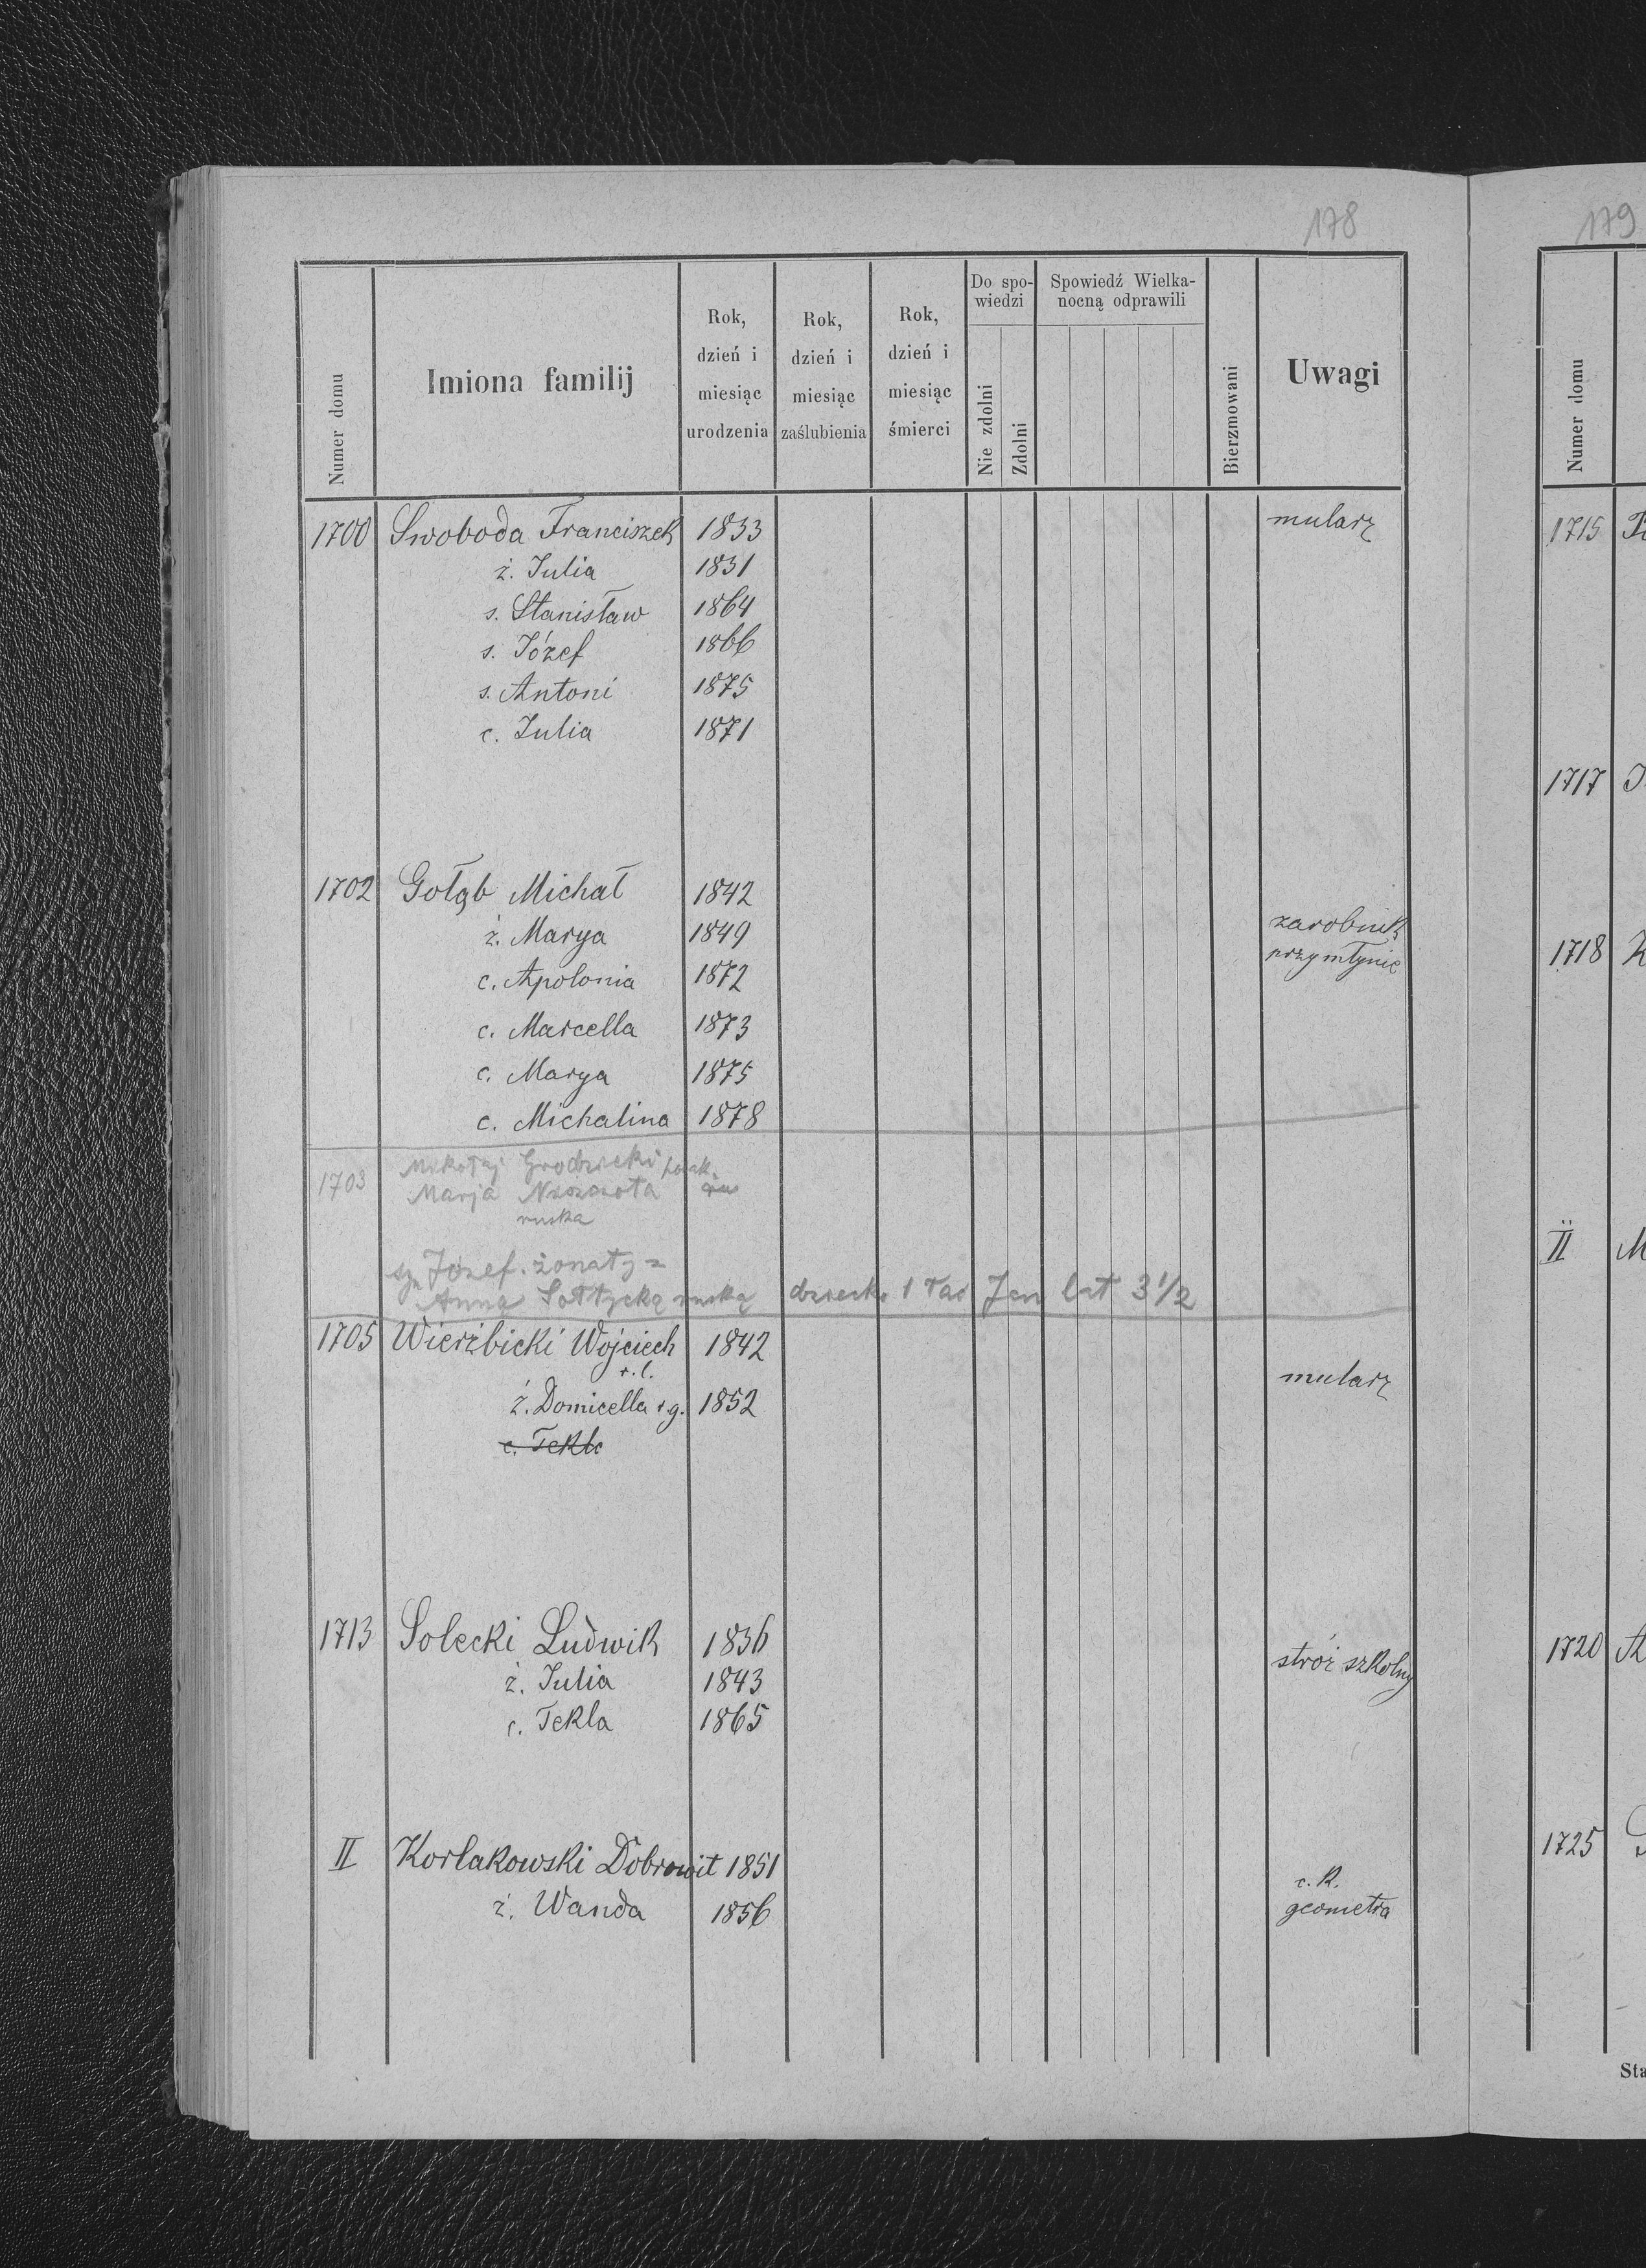 178
179
Numer domu
Imiona familij
Rok, dzień i miesiąc urodzenia
Rok, dzień i miesiąc zaślubienia
Rok, dzień i miesiąc śmierci
Do spowiedzi
Nie zdolni
Zdolni
Spowiedź Wielkanocną odprawili
Bierzmowani
Uwagi
1700 Swoboda Franciszek 1833 mularz
ż. Julia 1831
s. Stanisław 1864
s. Józef 1866
s. Antoni 1875
c. Julia 1871
1702 Gołąb Michał 1842
ż. Marya 1849 zarobnik
przy młynie
c. Apolonia 1872
c. Marcella 1873
c. Marya 1875
c. Michalina 1878
1703 Mikołaj Grodzicki polak
Marja
ruska
syn Józef żonaty z
Anną Sołtycką ruską dziecko 1 Jan lat 3 1/2
1705 Wierzbicki Wojciech 1842
r. l.
mularz
ż. Domicella r g. 1852
c. Tekla
1713 Solecki Ludwik 1836
stróż szkolny
ż. Julia 1843
c. Tekla 1865
II Korlakowski Dobrowit 1851
c. k.
ż. Wanda 1856 geometra
Numer domu
1715
1717
1718
II M
1720
1725
Sta